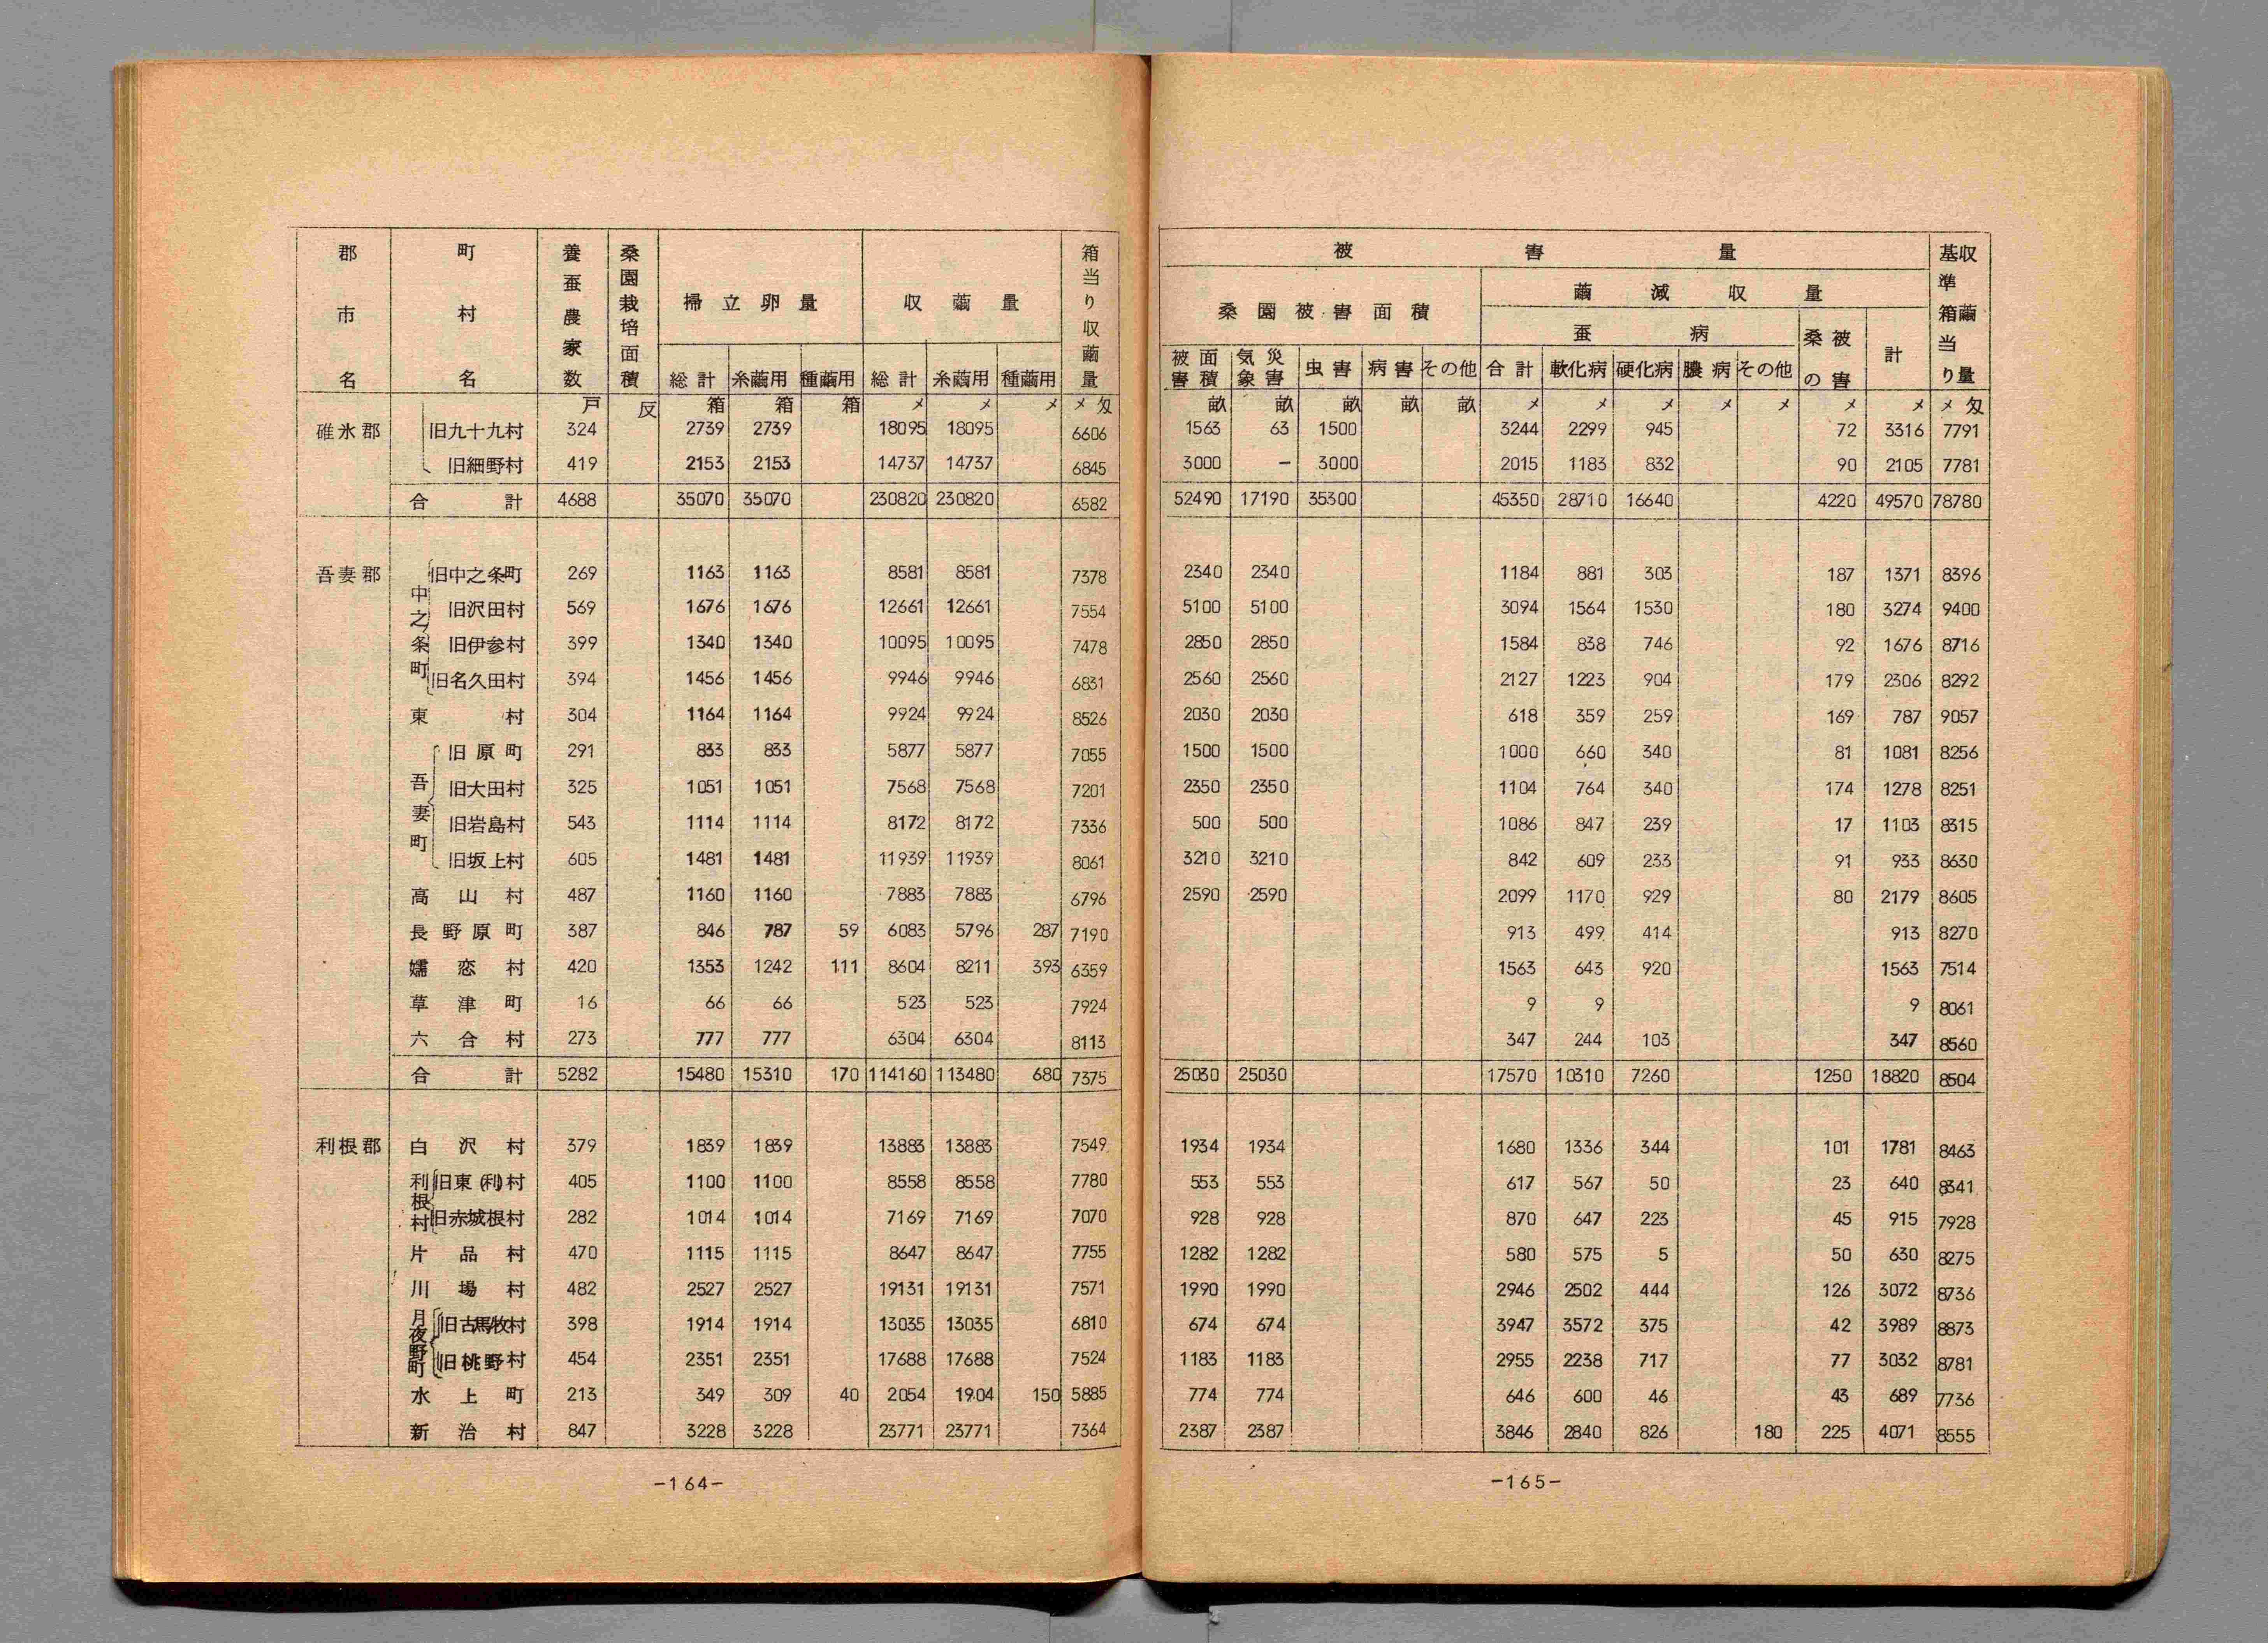 郡市名 町村名 養蚕農家数 桑園栽培面積 掃立卵量 収繭量 箱当り収繭量
総計 糸繭用 種繭用 総計 糸繭用 種繭用
戸 反 箱 箱 箱 メ メ メ メ匁
碓氷郡 旧九十九村 324 2739 2739 18095 18095 6606
旧細野村 419 2153 2153 14737 14737 6845
合計 4688 35070 35070 230820 230820 6582
吾妻郡 中之条町 旧中之条町 269 1163 1163 8581 8581 7378
旧沢田村 569 1676 1676 12661 12661 7554
旧伊参村 399 1340 1340 10095 10095 7478
旧名久田村 394 1456 1456 9946 9946 6831
東村 304 1164 1164 9924 9924 8526
吾妻町 旧原町 291 833 833 5877 5877 7055
旧大田村 325 1051 1051 7568 7568 7201
旧岩島村 543 1114 1114 8172 8172 7336
旧坂上村 605 1481 1481 11939 11939 8061
高山村 487 1160 1160 7883 7883 6796
長野原町 387 846 787 59 6083 5796 287 7190
嬬恋村 420 1353 1242 111 8604 8211 393 6359
草津町 16 66 66 523 523 7924
六合村 273 777 777 6304 6304 8113
合計 5282 15480 15310 170 114160 113480 680 7375
利根郡 白沢村 379 1839 1839 13883 13883 7549
利根村 旧東(利)村 405 1100 1100 8558 8558 7780
旧赤城根村 282 1014 1014 7169 7169 7070
片品村 470 1115 1115 8647 8647 7755
川場村 482 2527 2527 19131 19131 7571
月夜野町 旧古馬牧村 398 1914 1914 13035 13035 6810
旧桃野村 454 2351 2351 17688 17688 7524
水上町 213 349 309 40 2054 1904 150 5885
新治村 847 3228 3228 23771 23771 7364
-164-
被害量 基準箱当り収繭量
桑園被害面積 繭減収量
蚕病 桑の被害 計
被害面積 気象災害 虫害 病害 その他 合計 軟化病 硬化病 膿病 その他
畝 畝 畝 畝 畝 メ メ メ メ メ メ メ メ匁
1563 63 1500 3244 2299 945 72 3316 7791
3000 - 3000 2015 1183 832 90 2105 7781
52490 17190 35300 45350 28710 16640 4220 49570 78780
2340 2340 1184 881 303 187 1371 8396
5100 5100 3094 1564 1530 180 3274 9400
2850 2850 1584 838 746 92 1676 8716
2560 2560 2127 1223 904 179 2306 8292
2030 2030 618 359 259 169 787 9057
1500 1500 1000 660 340 81 1081 8256
2350 2350 1104 764 340 174 1278 8251
500 500 1086 847 239 17 1103 8315
3210 3210 842 609 233 91 933 8630
2590 2590 2099 1170 929 80 2179 8605
913 499 414 913 8270
1563 643 920 1563 7514
9 9 9 8061
347 244 103 347 8560
25030 25030 17570 10310 7260 1250 18820 8504
1934 1934 1680 1336 344 101 1781 8463
553 553 617 567 50 23 640 8341
928 928 870 647 223 45 915 7928
1282 1282 580 575 5 50 630 8275
1990 1990 2946 2502 444 126 3072 8736
674 674 3947 3572 375 42 3989 8873
1183 1183 2955 2238 717 77 3032 8781
774 774 646 600 46 43 689 7736
2387 2387 3846 2840 826 180 225 4071 8555
-165-